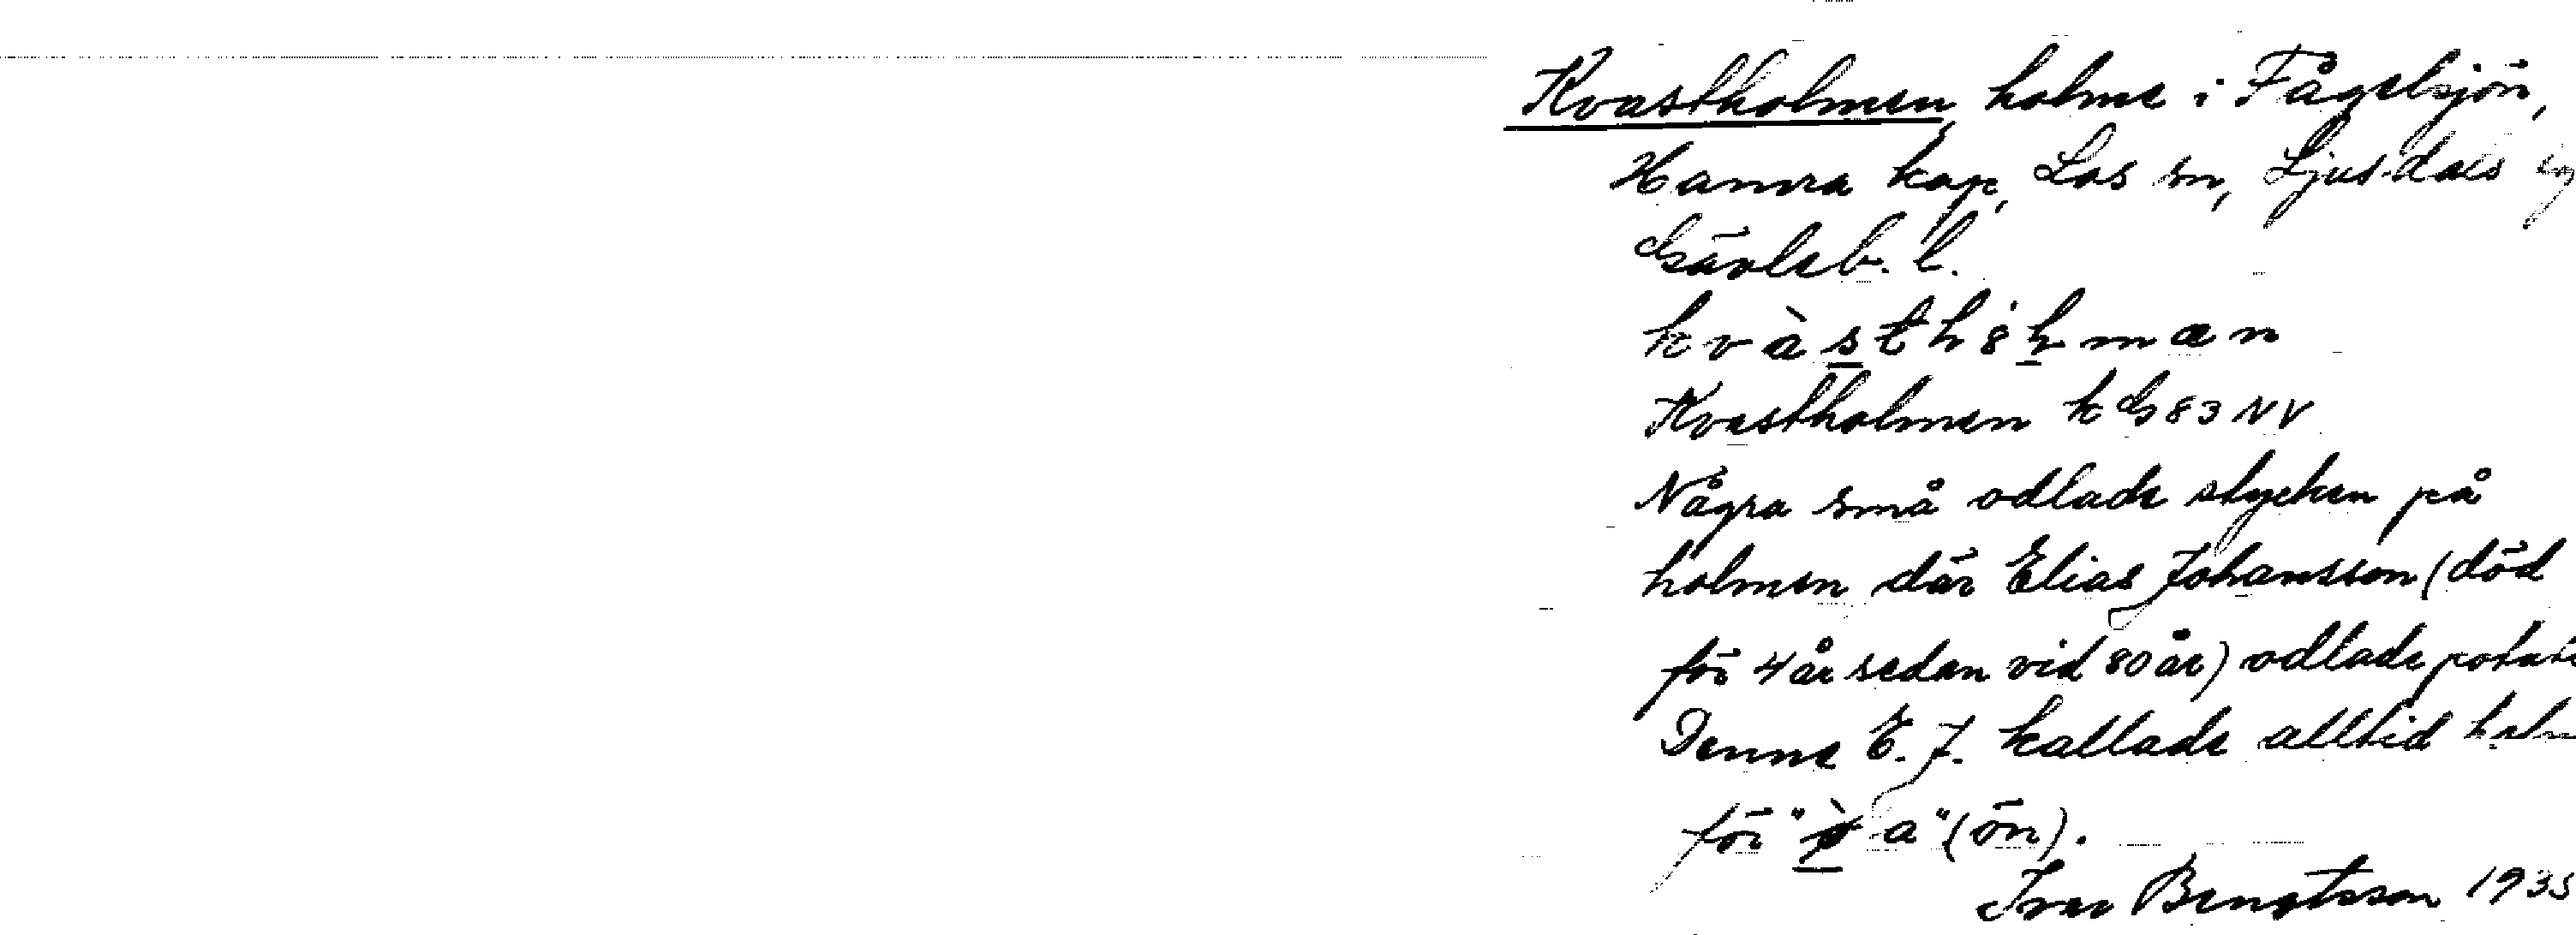 Kvastholmen, holme i Fågelsjön,
Hamra kap, Los sn, Ljusdals
Gävleb. l.
kvàsthȯl̥man
Kvastholmen k G 83 NV
Några små odlade stycken på
holmen där Elias Johansson (död
för 4 år sedan vid 80 år) odlade
Denne E. J. kallade alltid
för "ø̀ a" (ön).
Ivar Bengtsson 1935